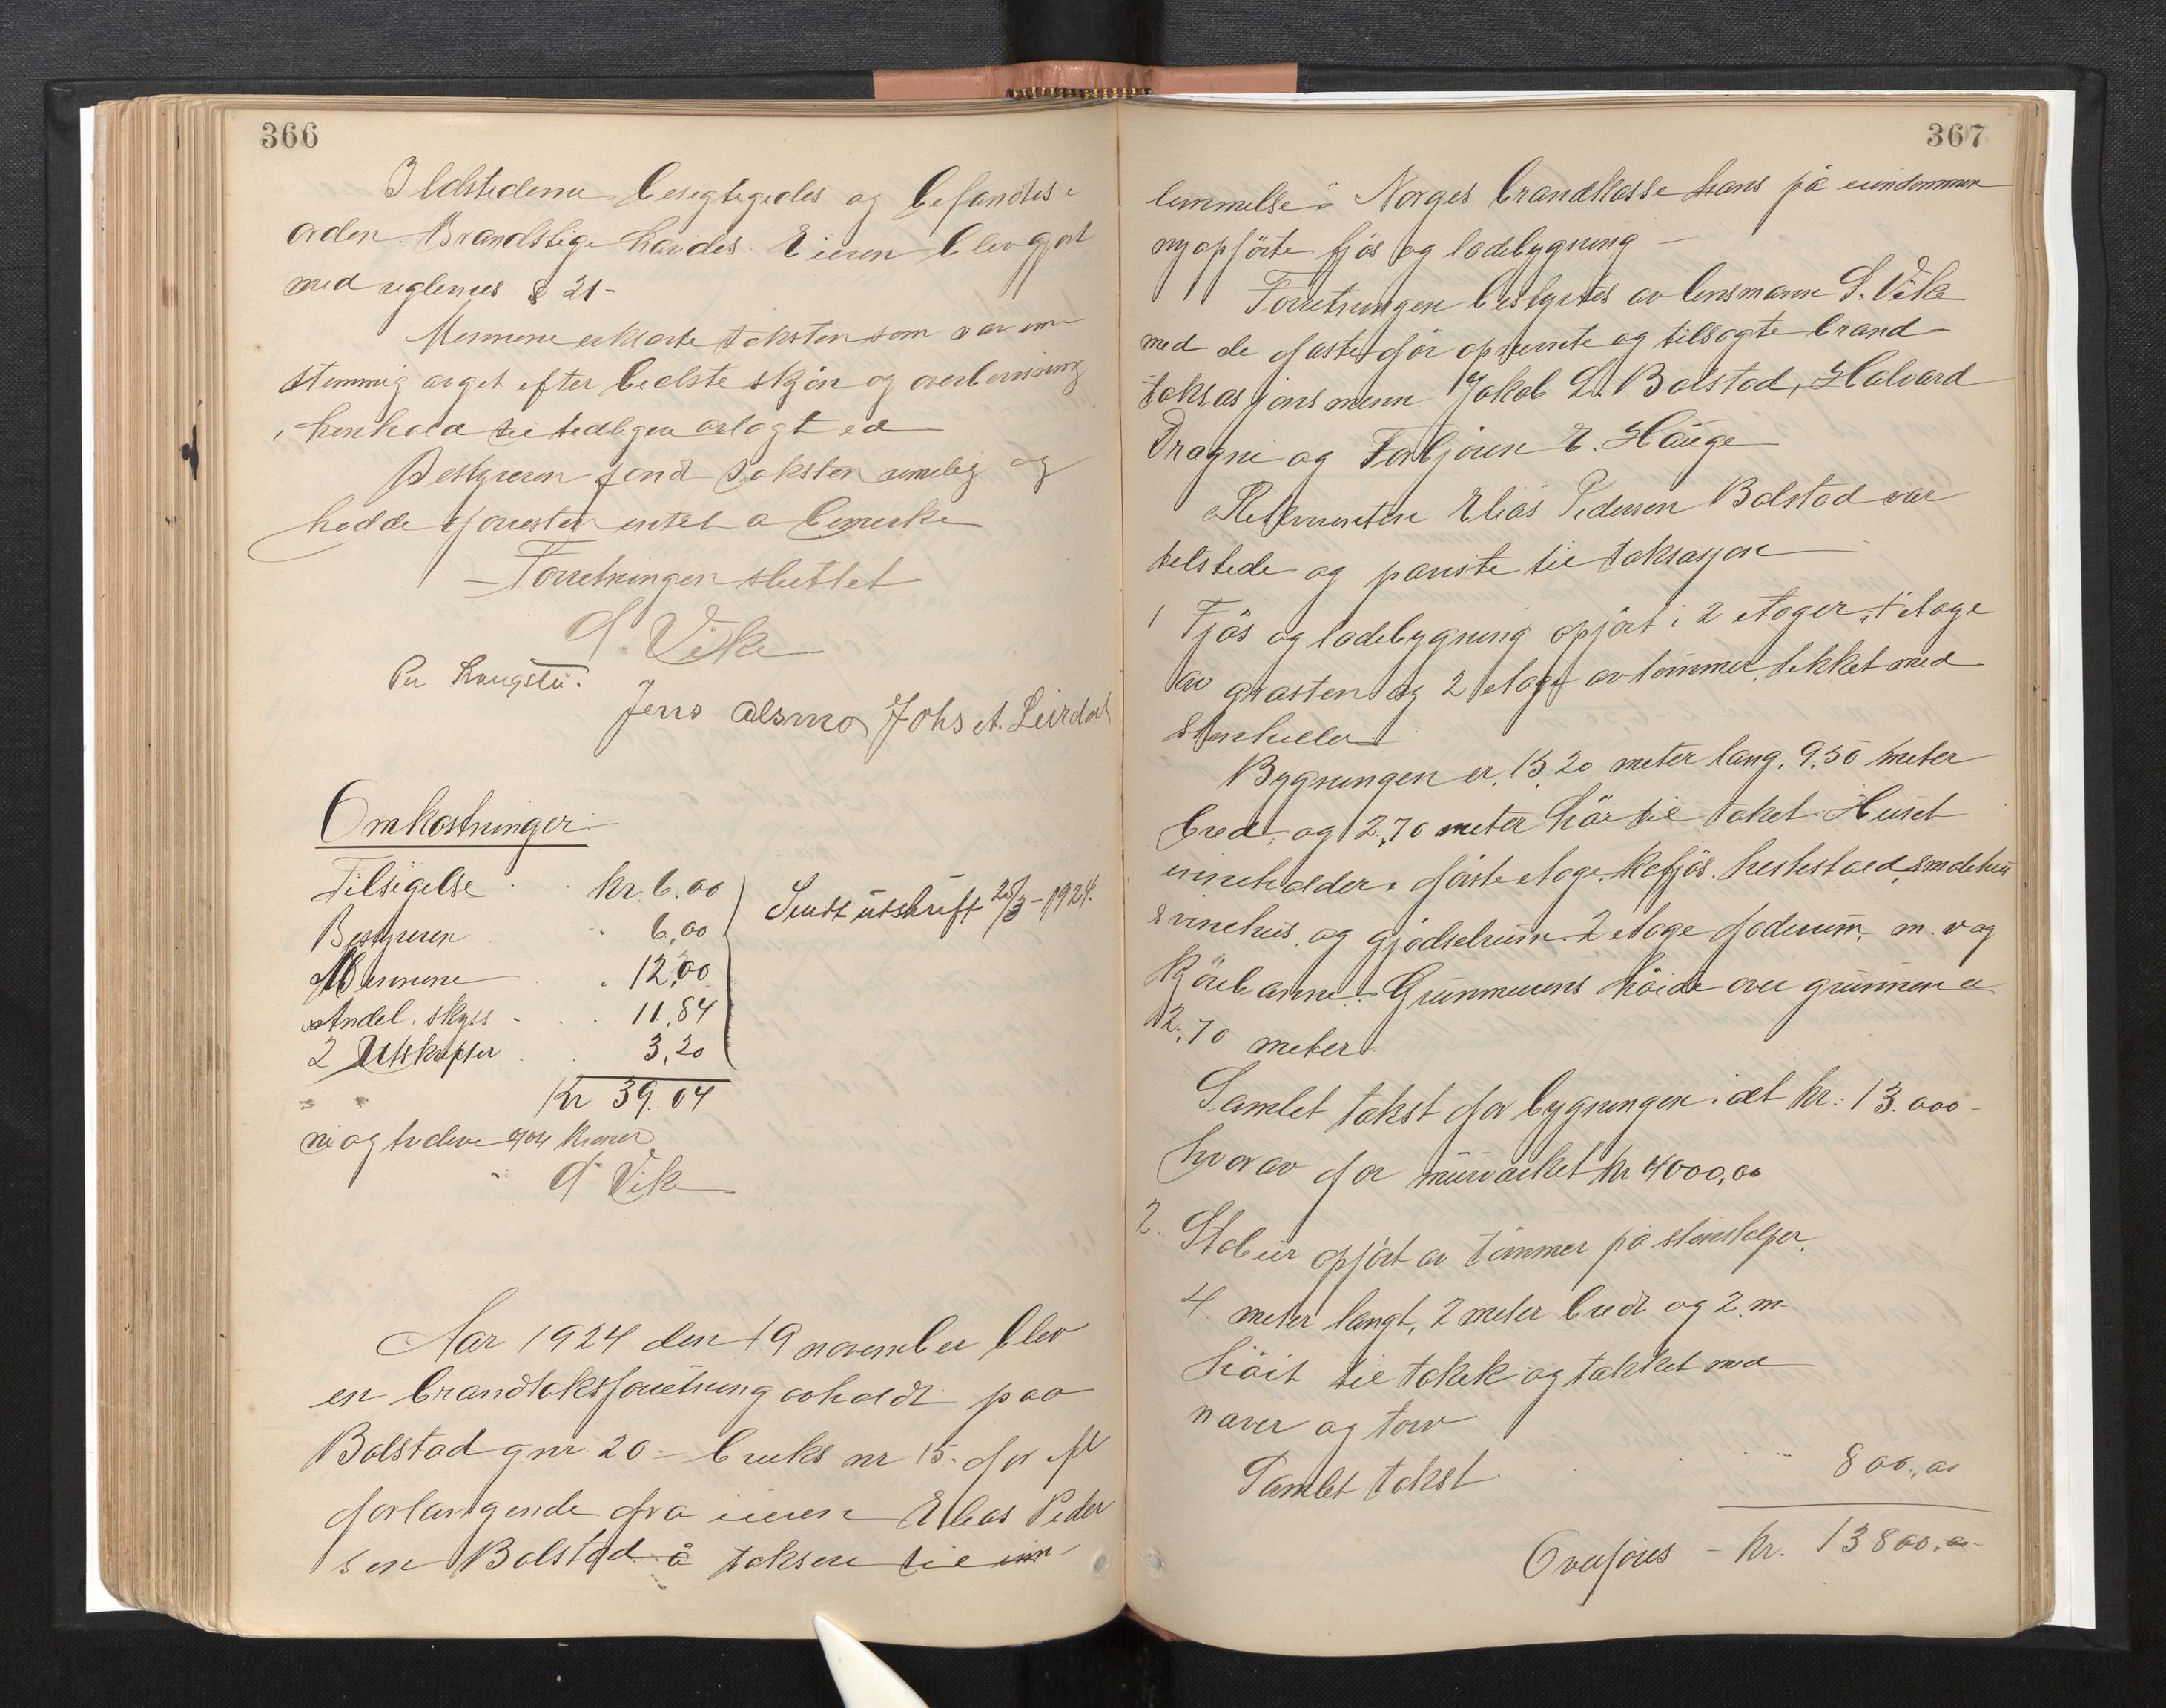 366
Ildstederne besigtigedes og befandtes i
orden. Brandstige havdes. Eieren blev gjort
med reglenes § 21 -
Mennene erklærte taksten som var en-
stemmig avgit efter bedste skjøn og overbevisning
i henhold til tidligere avlagt ed
Bestyreren fand taksten rimelig og
hadde forresten intet a bemerke
- Forretningen sluttet
S. Vike
Per Langstü.
Jens Alsmo Johs A. Leirdal
Omkostninger
Tilsigelse kr. 6.00
Bestyreren 6,00
Mennene 12,00
Andel i skyss 11,84
2 Utskrifter 3,20
Sendt utskrift 25/3 - 1924.
Kr 39.04
ni og tredeve 04 Kroner
S Vike
Aar 1924 den 19 november blev
en brandtakstforretning avholdt paa
Bolstad gnr 20 - bruks nr 15. for
forlangende fra eieren Elias Peder
sen Bolstad å taksere til inn-
367
lemmelse i Norges brandkasse hans på eiendommen
nyopførte fjøs og ladebygning -
Forretningen bestyrtes av lensmann S. Vike
med de faste før opnevnte og tilsagte brand
taksasjonsmenn Jakob L. Bolstad, Halvard
Dragni og Torbjørn E. Hauge
Rekvirenten Elias Pedersen Bolstad var
tilstede og paviste til taksasjon
1 Fjøs og ladebygning opført i 2 etager, 1 etage
av graasten og 2 etage av tømmer, tekket med
stenheller
Bygningen er 13.20 meter lang, 9,50 meter
bred, og 2,70 meter høi til taket. Huset
inneholder i første etage, kofjøs, heststald, smalehus
svinehus, og gjødselrum. 2 etage foderum, m. v og
kjørebanne. Grunmurens høide over grunnen er
2,70 meter.
Samlet takst for bygningen i alt kr. 13.000 -
hvorav for murverket kr 4000,00
2. Stabur opført av tømmer på stenstolper.
4 meter langt, 2 meter bredt og 2 m
høit til taket og tækket med
never og torv
Samlet takst 800,00
Overføres - kr. 13800,00 -